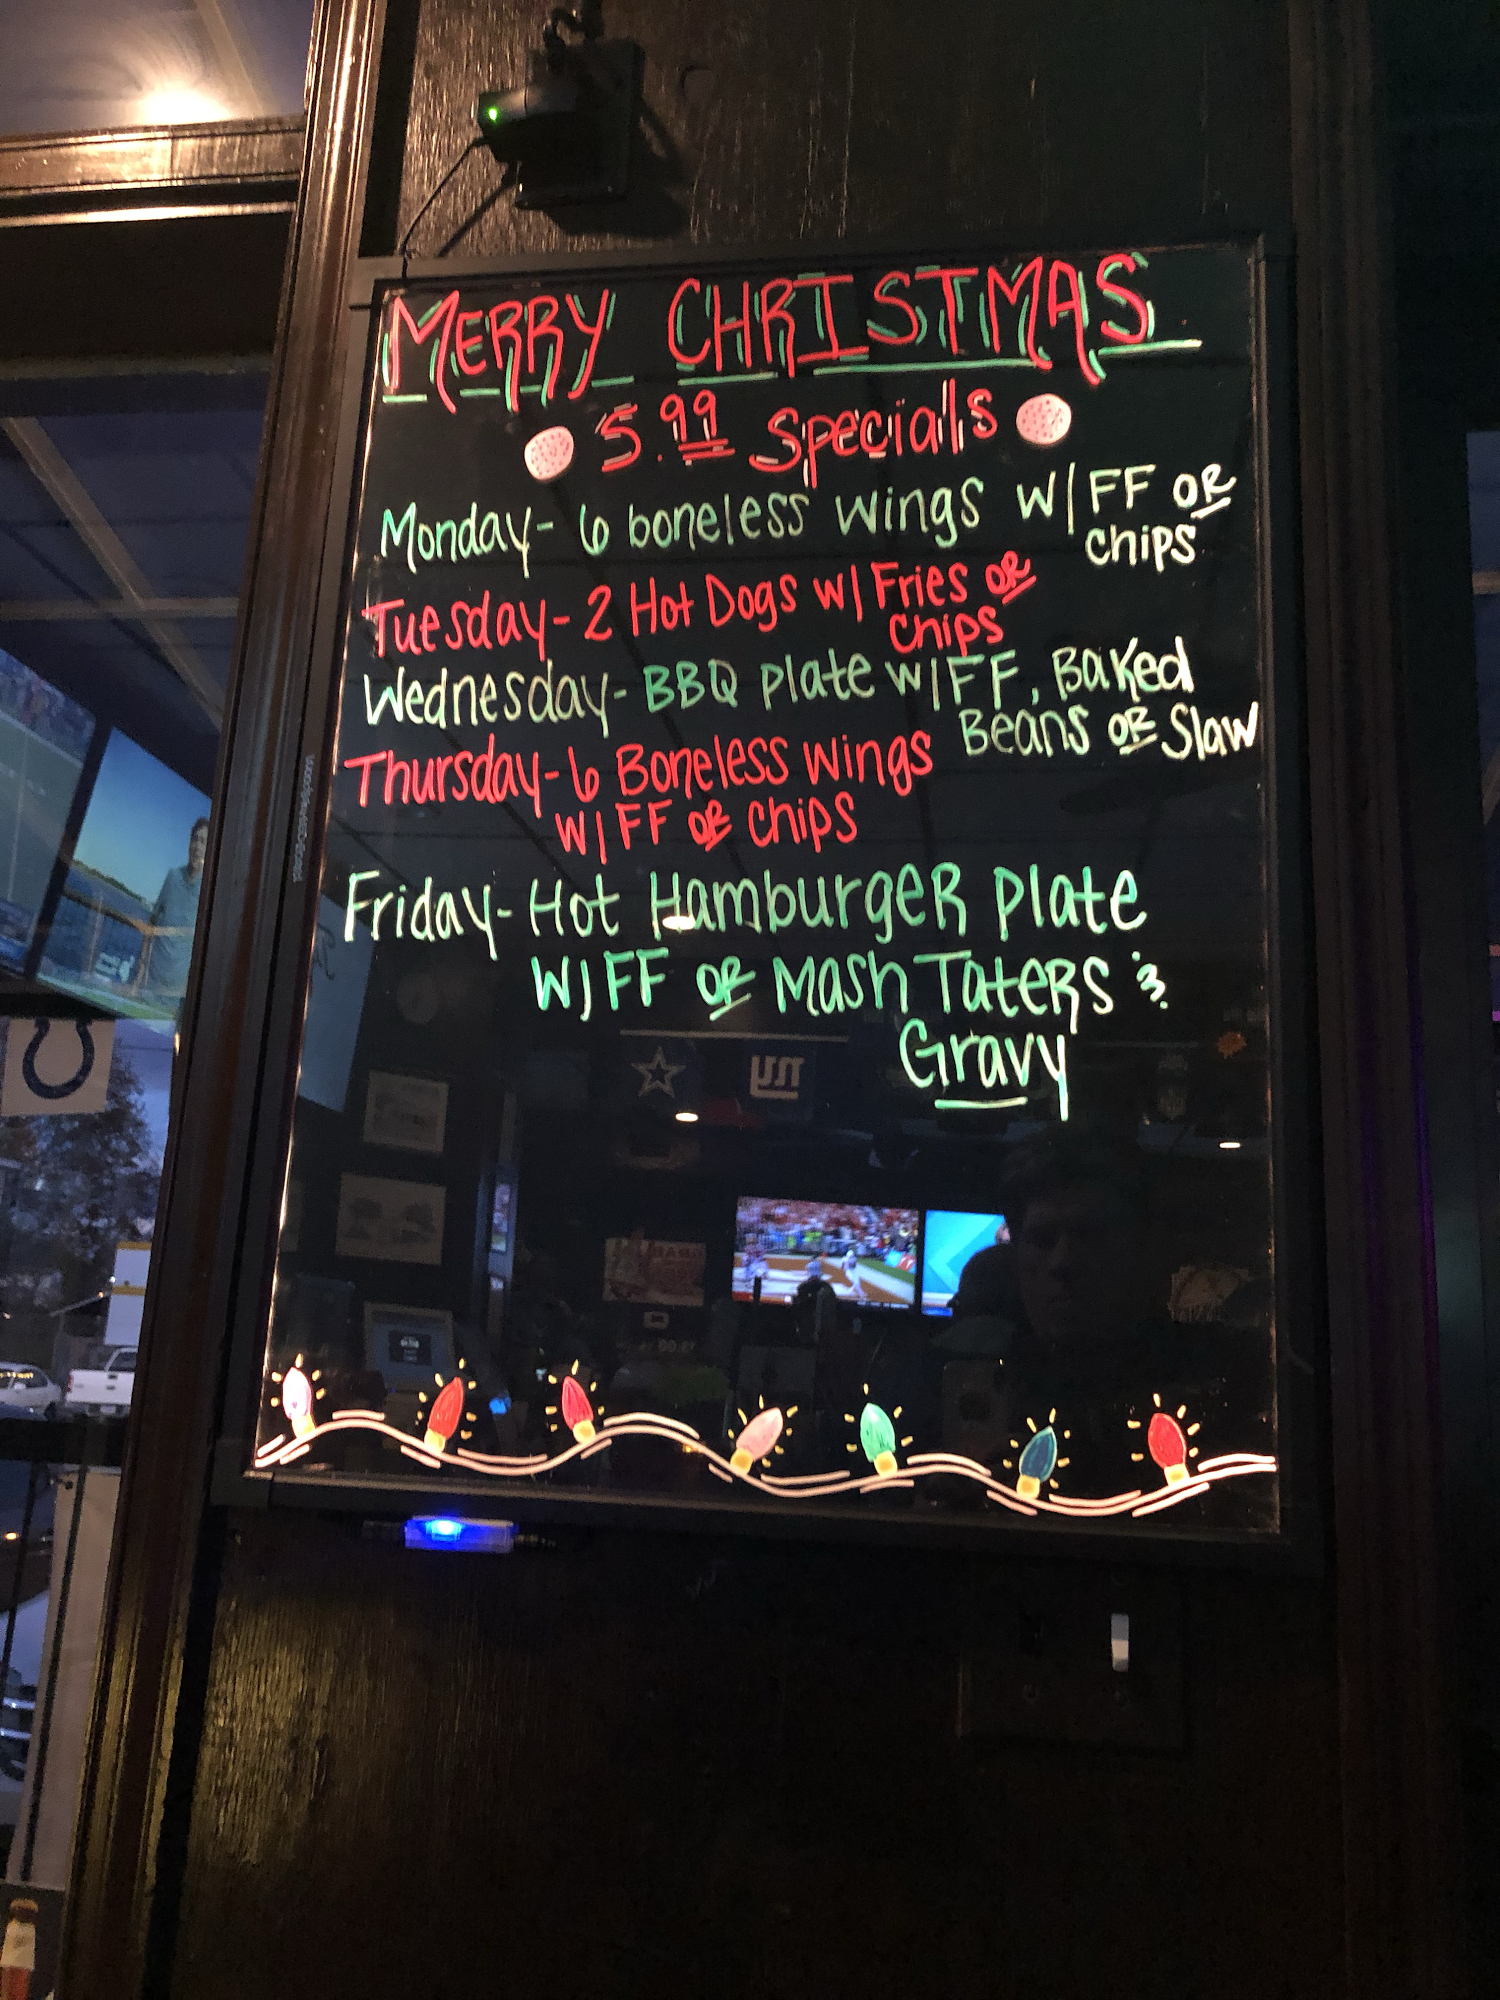 MERRY CHRISTMAS
5.99 Specials
Monday- 6 boneless wings w/ FF OR
chips
Tuesday- 2 Hot Dogs w/ Fries OR
chips
Wednesday- BBQ plate w/ FF, Baked
Beans OR Slaw
Thursday- 6 Boneless wings
w/ FF OR chips
Friday- Hot HamburgeR plate
w/ FF OR Mash TateRs &
Gravy